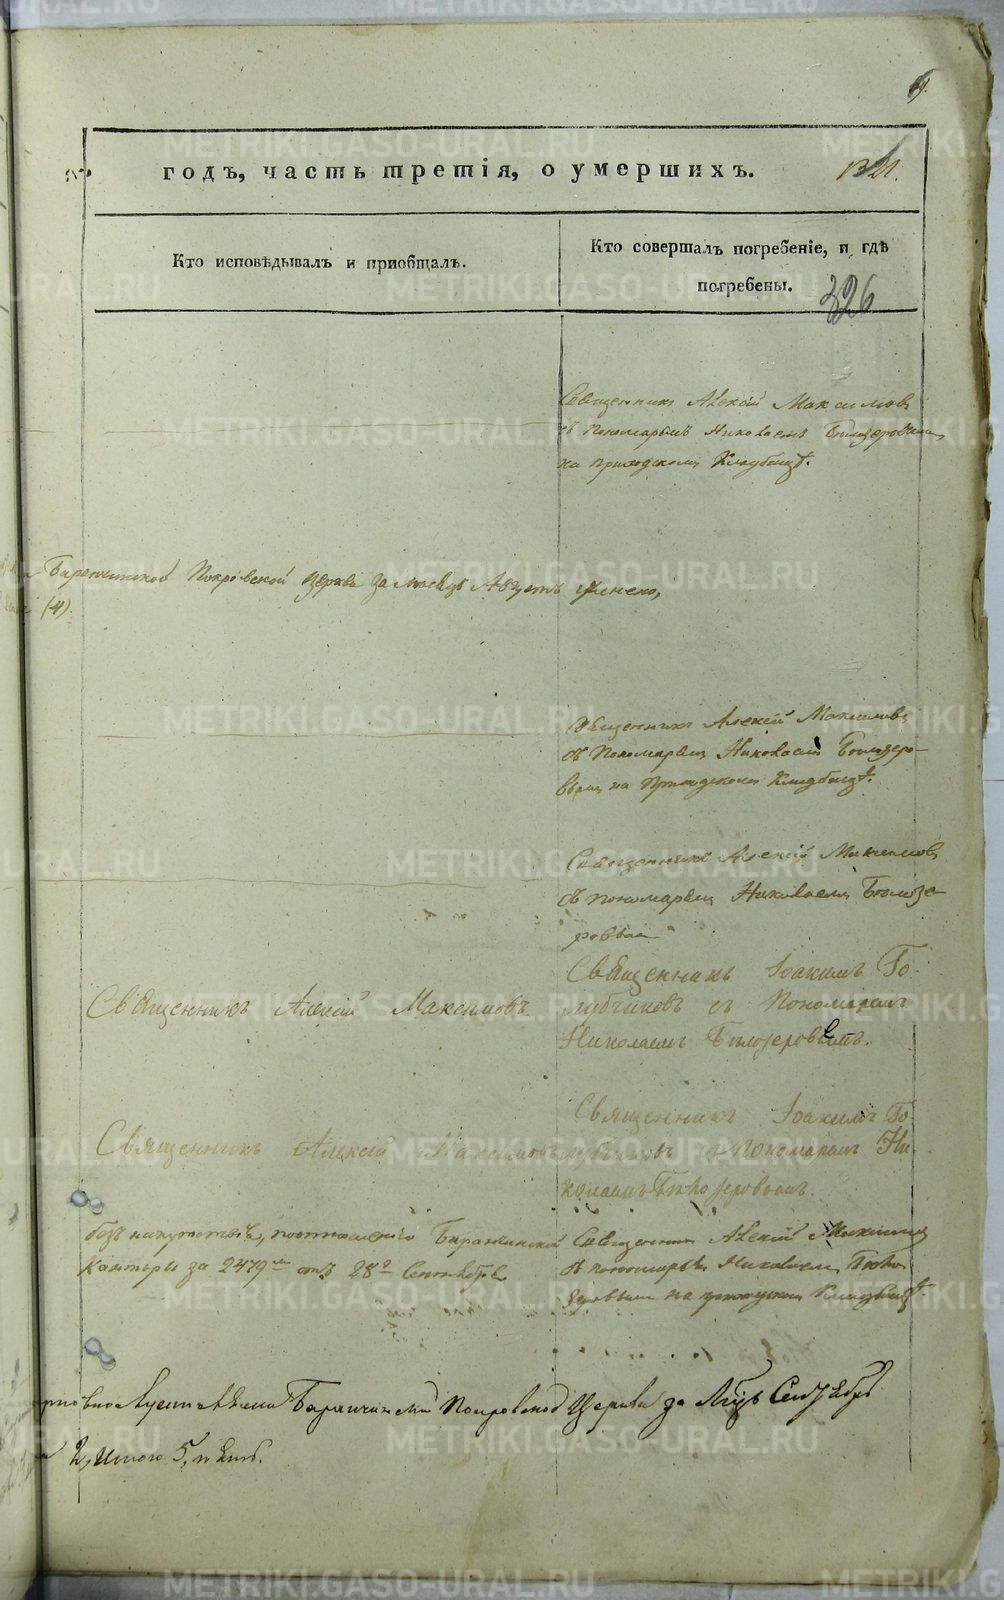 годъ, часть третія, о умершихъ.
Кто исповѣдывалъ и пріобщалъ.
Кто совершалъ погребеніе, и гдѣ
погребены.
326
Священникъ Алексій Максимовъ
съ пономаремъ Николаемъ Бѣлозеровымъ
на приходскомъ Кладбищѣ.
Баранчинской Покровской церкви за месяцъ Августъ
(4).
Священникъ Алексій Максимовъ
съ Пономаремъ Николаемъ Бѣлозеро-
вымъ на Приходскомъ Кладбищѣ.
Священникъ Алексій Максимовъ
съ пономаремъ Николаемъ Бѣлозе-
ровымъ
Священникъ Алексій Максимовъ
Священникъ Іоакимъ Го-
лубчиковъ съ Пономаремъ
Николаемъ Бѣлозеровымъ.
Священникъ Алексій Максимовъ
Священникъ Іоакимъ Го-
лубчиковъ съ Пономаремъ Ни-
колаемъ Бѣлозеровымъ.
безъ напутствія, Баранчинской
Канторы за 2479м отъ 28го Сентября
Священникъ Алексій Максимовъ
съ пономаремъ Николаемъ Бѣло-
зеровымъ на приходскомъ Кладбищѣ.
Баранчинской Покровской Церкви за Мцъ Сентябрь
2, Итого 5, пять.
METRIKI.GASO-URAL.RU